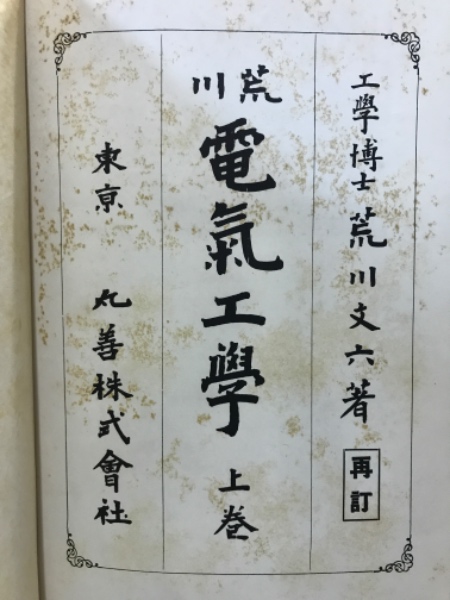 工學博士 荒川文六著 再訂
荒川
電氣工學 上巻
東京 丸善株式會社